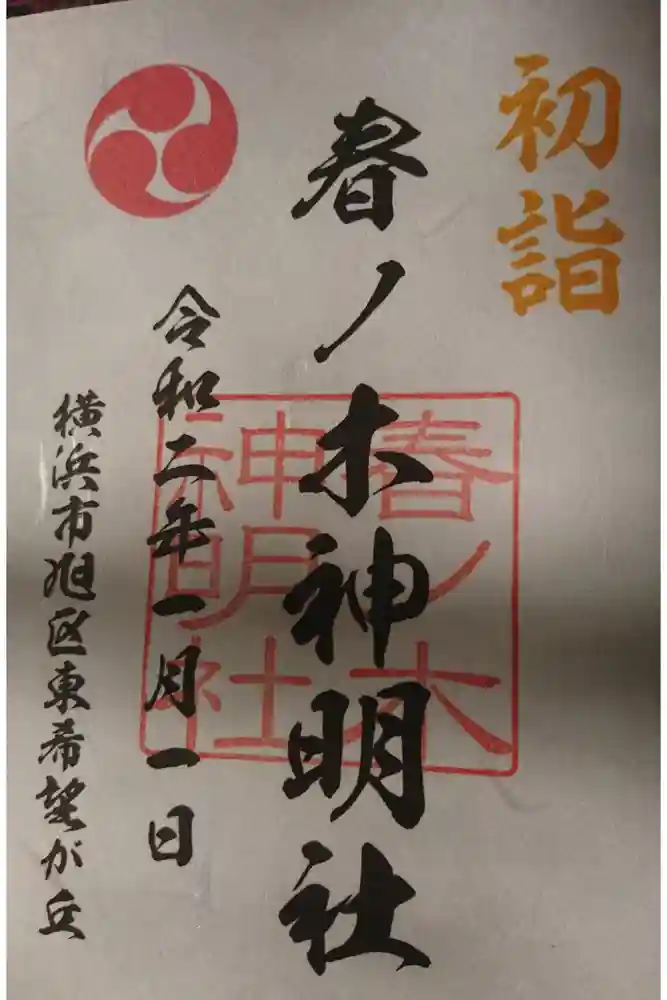 初詣
春ノ木神明社
春ノ木
神明社
令和二年一月一日
横浜市旭区東希望が丘